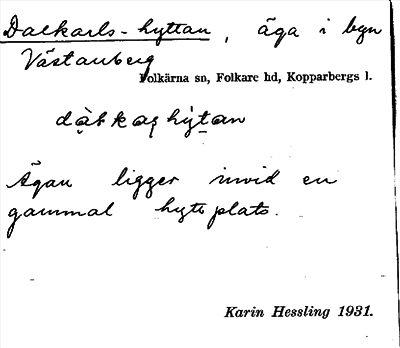 Dalkarls-hyttan, äga i byn
Västanberg
Folkärna sn, Folkare hd, Kopparbergs l.
Ägan ligger invid en
gammal hytteplats.
Karin Hessling 1931.